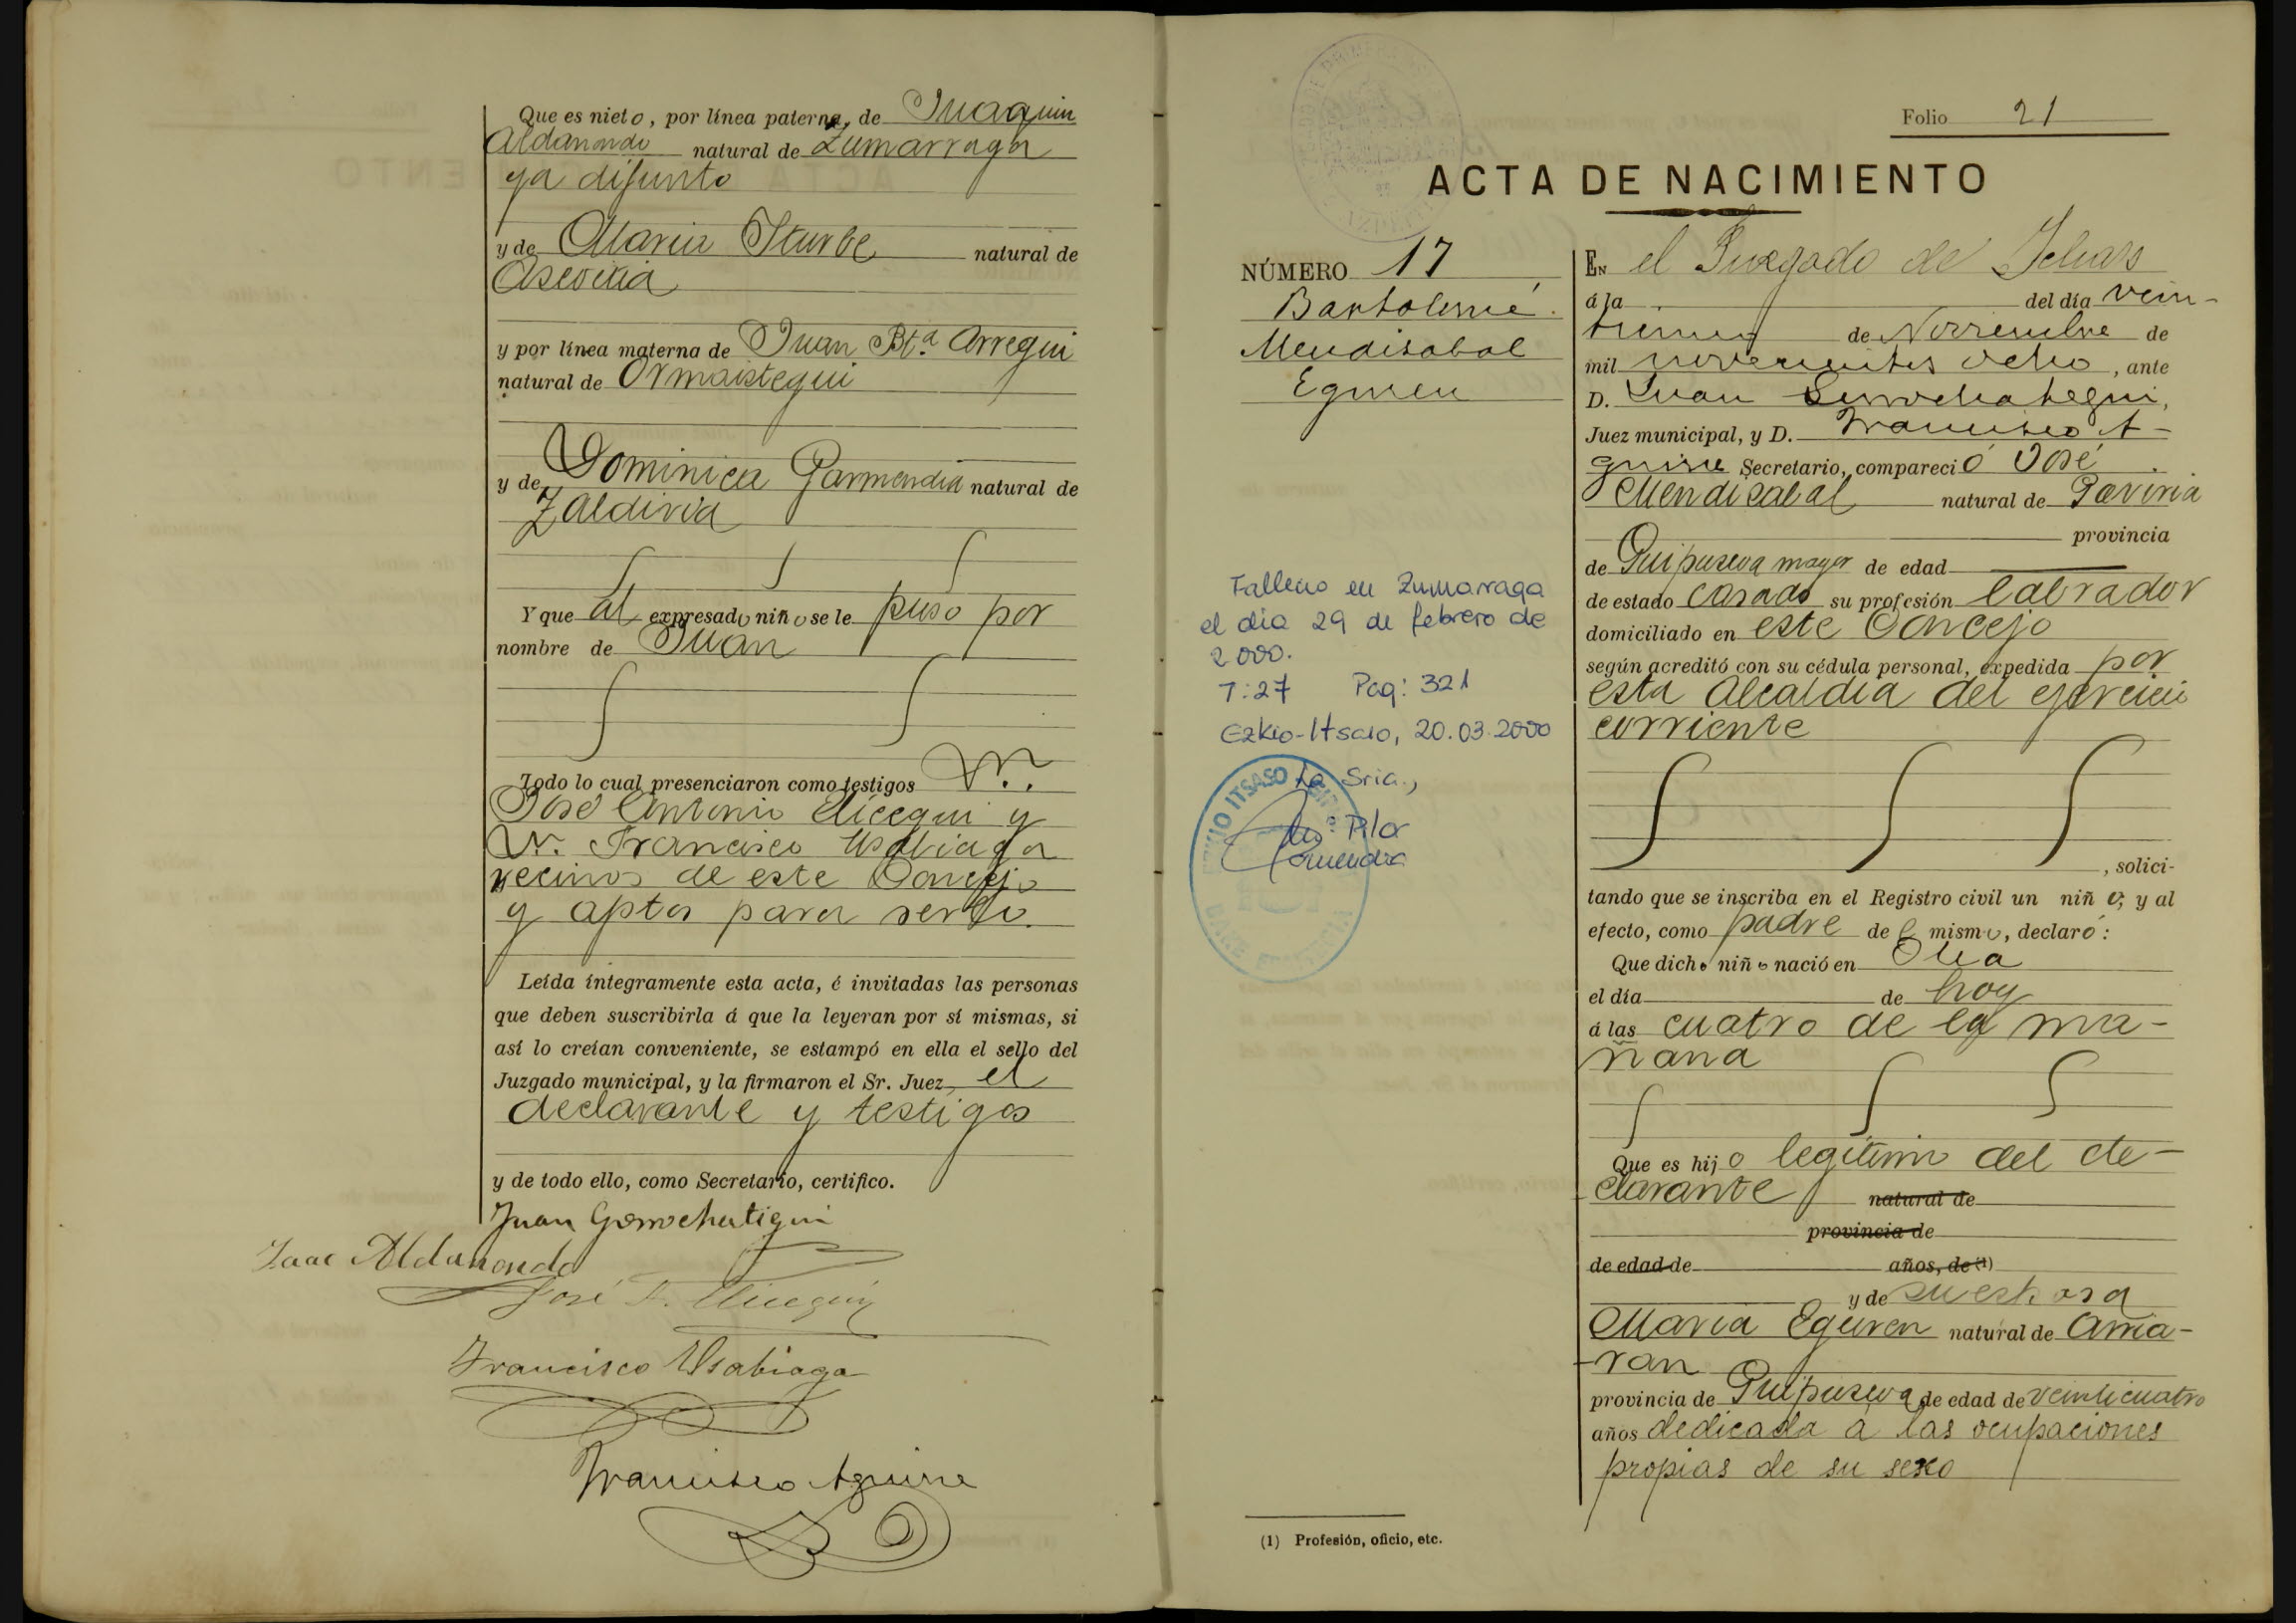 Que es nieto, por línea paterna, de Juaquin
Aldanondo natural de Zumarraga
ya difunto
y de Maria Iturbe natural de
Ascoitia
y por línea materna de Juan Bta. Arregui
natural de Ormaistegui
y de Dominica Garmendia natural de
Zaldivia
Y que al expresado niño se le puso por
nombre de Juan
Todo lo cual presenciaron como testigos D.
José Antonio Elicegui y
D. Francisco Usabiaga
vecinos de este Concejo
y aptos para serlo.
Leída íntegramente esta acta, é invitadas las personas
que deben suscribirla á que la leyeran por sí mismas, si
así lo creían conveniente, se estampó en ella el sello del
Juzgado municipal, y la firmaron el Sr. Juez, el
declarante y testigos
y de todo ello, como Secretario, certifico.
Juan Gorrochategui
Isaac Aldanondo
José A. Elicegui
Francisco Usabiaga
Francisco Aguirre
Folio 21
ACTA DE NACIMIENTO
NÚMERO 17
Bartolomé
Mendisabal
Eguren
Falleció en Zumarraga
el día 29 de febrero de
2000.
T: 27 Pag: 321
Ezkio-Itsaso, 20.03.2000
La Sria.,
Mª Pilar
EZKIO ITSASO
En el Juzgado de Ichaso
á la del día vein-
tiuno de Noviembre de
mil novecientos ocho, ante
D. Juan Gorrochategui,
Juez municipal, y D. Francisco A-
guirre Secretario, compareció José
Mendizabal natural de Gaviria
provincia
de Guipuscoa mayor de edad
de estado casado su profesión labrador
domiciliado en este Concejo
según acreditó con su cédula personal, expedida por
esta Alcaldía del ejercicio
corriente
, solici-
tando que se inscriba en el Registro civil un niño; y al
efecto, como padre del mismo, declaró:
Que dicho niño nació en
el día de hoy
á las cuatro de la ma-
ñana
Que es hijo legítimo del de-
clarante natural de
provincia de
de edad de años, de (1)
y de su esposa
Maria Eguren natural de Arria-
ran
provincia de Guipuscoa de edad de veinticuatro
años dedicada á las ocupaciones
propias de su sexo
(1) Profesión, oficio, etc.